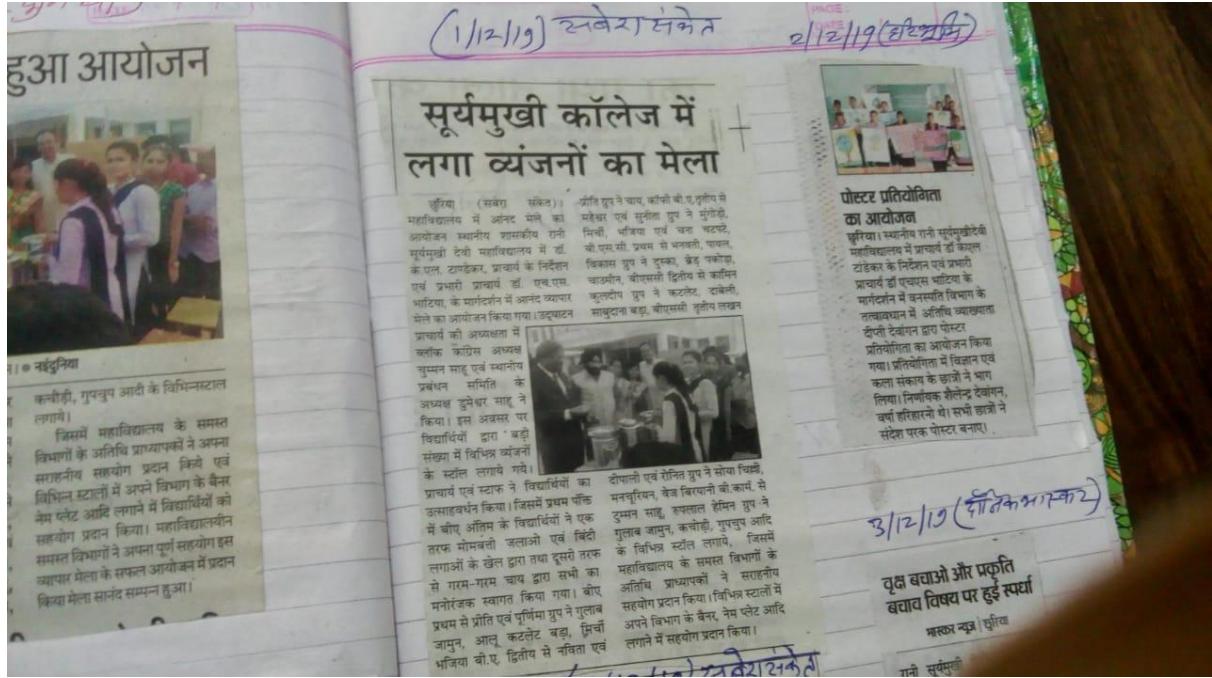 हुआ आयोजन
● नईदुनिया
कचौड़ी, गुपचुप आदी के विभिन्नस्टाल
लगाये।
जिसमें महाविद्यालय के समस्त
विभागों के अतिथि प्राध्यापकों ने अपना
सराहनीय सहयोग प्रदान किये एवं
विभिन्न स्टालों में अपने विभाग के बैनर
नेम प्लेट आदि लगाने में विद्यार्थियों को
सहयोग प्रदान किया। महाविद्यालयीन
समस्त विभागों ने अपना पूर्ण सहयोग इस
व्यापार मेला के सफल आयोजन में प्रदान
किया मेला सानंद सम्पन्न हुआ।
(1/12/19) सबेरा संकेत
सूर्यमुखी कॉलेज में
लगा व्यंजनों का मेला
छुरिया (सबेरा संकेत)।
महाविद्यालय में आनंद मेले का
आयोजन स्थानीय शासकीय रानी
सूर्यमुखी देवी महाविद्यालय में डॉ.
के.एल. टाण्डेकर, प्राचार्य के निर्देशन
एवं प्रभारी प्राचार्य डॉ. एच.एस.
भाटिया, के मार्गदर्शन में आनंद व्यापार
मेले का आयोजन किया गया। उद्घाटन
प्राचार्य की अध्यक्षता में
ब्लॉक कांग्रेस अध्यक्ष
चुम्मन साहू एवं स्थानीय
प्रबंधन समिति के
अध्यक्ष डुमेश्वर साहू ने
किया। इस अवसर पर
विद्यार्थियों द्वारा बड़ी
संख्या में विभिन्न व्यंजनों
के स्टॉल लगाये गये।
प्राचार्य एवं स्टाफ ने विद्यार्थियों का
उत्साहवर्धन किया। जिसमें प्रथम पंक्ति
में बीए अंतिम के विद्यार्थियों ने एक
तरफ मोमबत्ती जलाओ एवं बिंदी
लगाओ के खेल द्वारा तथा दूसरी तरफ
से गरम-गरम चाय द्वारा सभी का
मनोरंजक स्वागत किया गया। बीए
प्रथम से प्रीति एवं पूर्णिमा ग्रुप ने गुलाब
जामुन, आलू कटलेट बड़ा, मिर्ची
भजिया बी.ए. द्वितीय से नविता एवं
प्रीति ग्रुप ने चाय, कॉफी बी.ए.तृतीय से
महेश्वर एवं सुनीता ग्रुप ने मुंगोड़ी,
मिर्ची, भजिया एवं चना चटपटे,
बी.एस.सी. प्रथम से भनवती, पायल,
विकास ग्रुप ने दुस्का, ब्रेड पकोड़ा,
चाउमीन, बीएससी द्वितीय से कामिन
कुलदीप ग्रुप ने कटलेट, दाबेली,
साबुदाना बड़ा, बीएससी तृतीय लखन
दीपाली एवं रोनित ग्रुप ने सोया चिल्ली,
मनचूरियन, वेज बिरयानी बी.काम. से
टुम्मन साहू, रुपलाल हेमिन ग्रुप ने
गुलाब जामुन, कचोड़ी, गुपचुप आदि
के विभिन्न स्टॉल लगाये, जिसमें
महाविद्यालय के समस्त विभागों के
अतिथि प्राध्यापकों ने सराहनीय
सहयोग प्रदान किया। विभिन्न स्टालों में
अपने विभाग के बैनर, नेम प्लेट आदि
लगाने में सहयोग प्रदान किया।
सबेरा संकेत
2/12/19 (हरिभूमि)
पोस्टर प्रतियोगिता
का आयोजन
छुरिया। स्थानीय रानी सूर्यमुखीदेवी
महाविद्यालय में प्राचार्य डॉ केएल
टांडेकर के निर्देशन एवं प्रभारी
प्राचार्य डॉ एचएस भाटिया के
मार्गदर्शन में वनस्पति विभाग के
तत्वावधान में अतिथि व्याख्याता
दीप्ती देवांगन द्वारा पोस्टर
प्रतियोगिता का आयोजन किया
गया। प्रतियोगिता में विज्ञान एवं
कला संकाय के छात्रों ने भाग
लिया। निर्णायक शैलेन्द्र देवांगन,
वर्षा हरिहारनो थे। सभी छात्रों ने
संदेश परक पोस्टर बनाए।
3/12/19 (दैनिक भास्कर)
वृक्ष बचाओ और प्रकृति
बचाव विषय पर हुई स्पर्धा
भास्कर न्यूज | छुरिया
रानी सूर्यमुखी